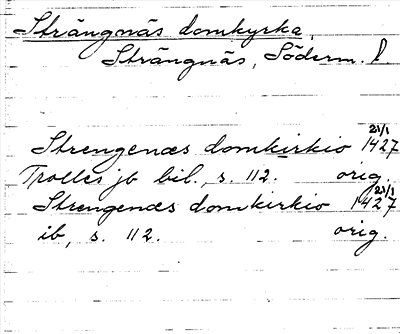 Strängnäs domkyrka,
Strängnäs, Söderm. l.
Strengenæs domkirkio 21/1 1427
Trolles jb bil., s. 112. orig.
Strengenæs domkirkio 21/1 1427
ib, s. 112. orig.